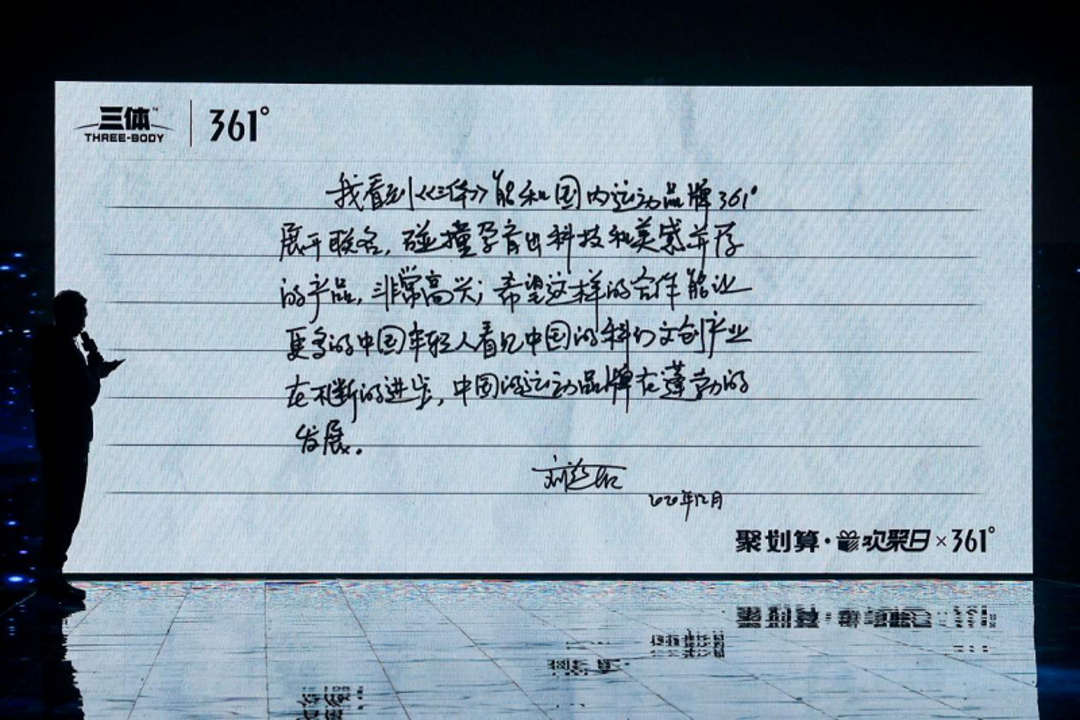 三体™ 361°
THREE-BODY
我看到《三体》能和国内运动品牌361°
展开联名，碰撞孕育出科技和美感并存
的产品，非常高兴；希望这样的合作能让
更多的中国年轻人看见中国的科幻文创产业
在不断的进步，中国的运动品牌在蓬勃的
发展。
2020年12月
聚划算·欢聚日×361°